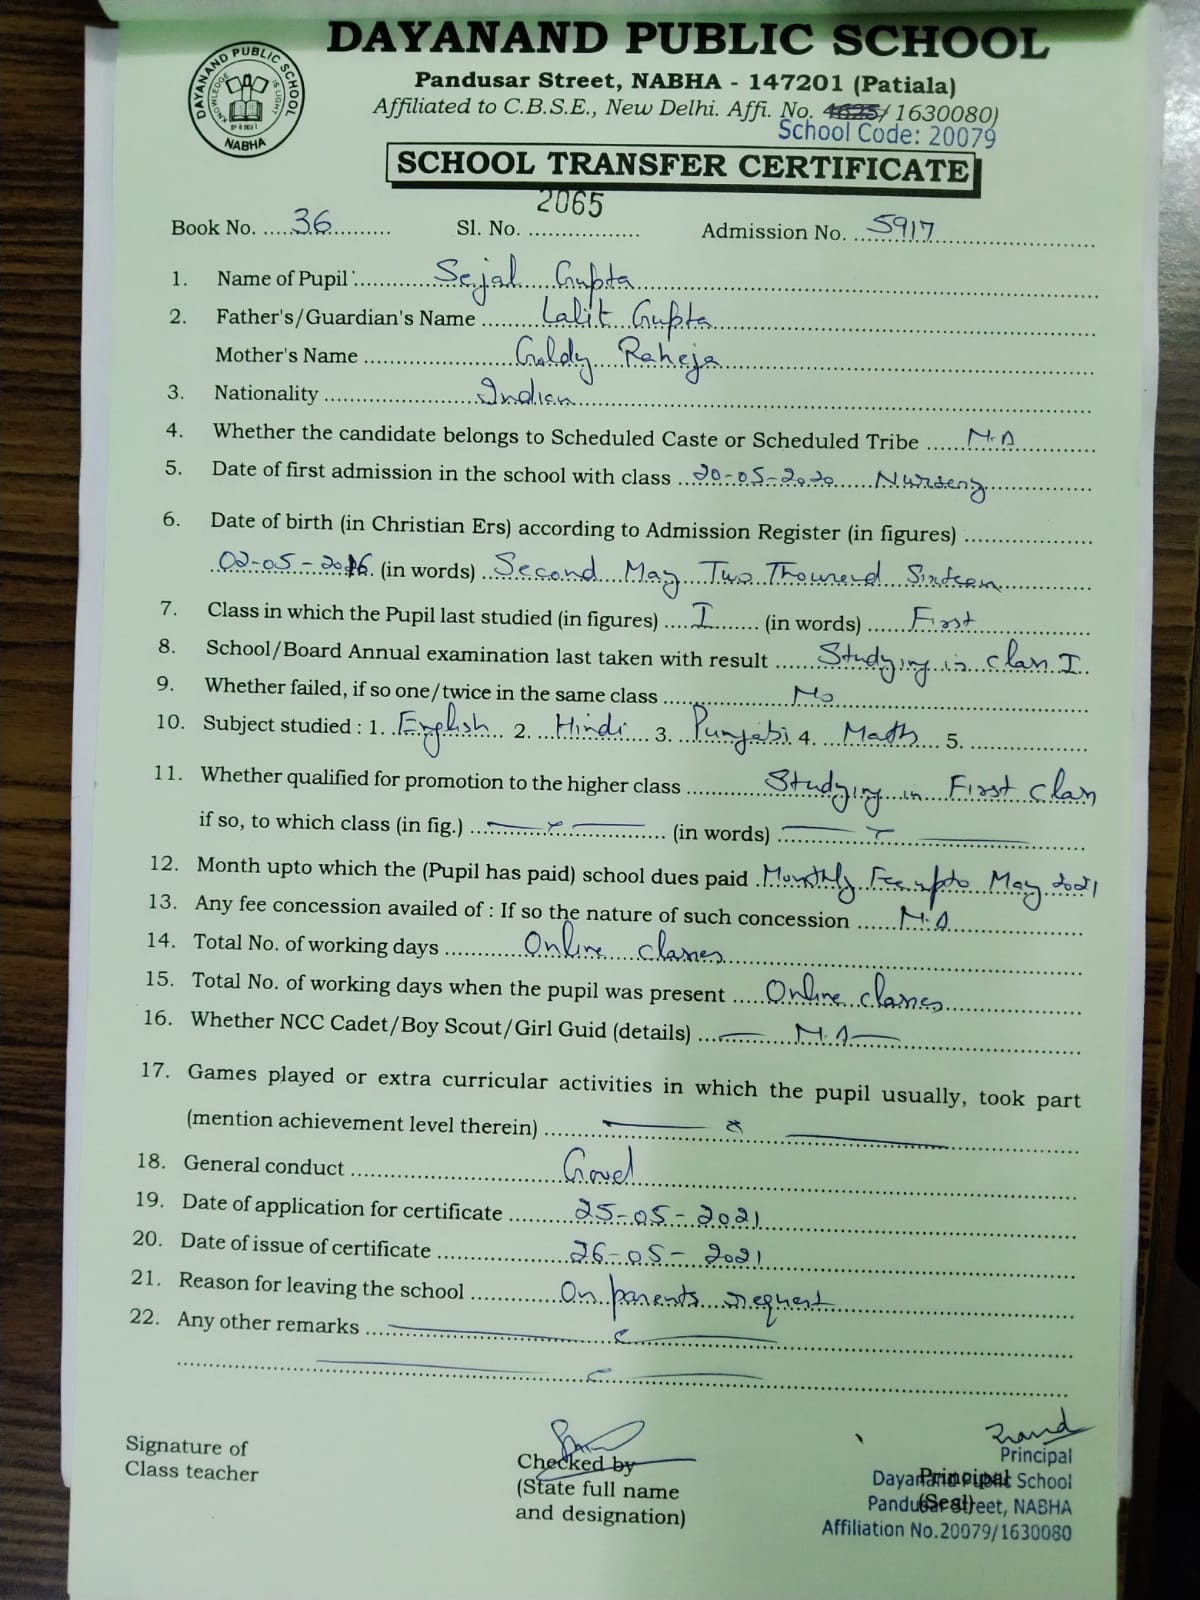 DAYANAND PUBLIC SCHOOL
DAYANAND PUBLIC SCHOOL
KNOWLEDGE IS LIGHT
NABHA
Pandusar Street, NABHA - 147201 (Patiala)
Affiliated to C.B.S.E., New Delhi. Affi. No. 4625/ 1630080)
School Code: 20079
SCHOOL TRANSFER CERTIFICATE
Book No. 36 Sl. No. 2065 Admission No. 5917
1. Name of Pupil Sejal Gupta
2. Father's/Guardian's Name Lalit Gupta
Mother's Name Goldy Raheja
3. Nationality Indian
4. Whether the candidate belongs to Scheduled Caste or Scheduled Tribe N.A
5. Date of first admission in the school with class 20-05-2020 Nursery
6. Date of birth (in Christian Ers) according to Admission Register (in figures)
02-05-2016 (in words) Second May Two Thousend Sixteen
7. Class in which the Pupil last studied (in figures) I (in words) First
8. School/Board Annual examination last taken with result Studying in class I
9. Whether failed, if so one/twice in the same class No
10. Subject studied : 1. English 2. Hindi 3. Punjabi 4. Math 5.
11. Whether qualified for promotion to the higher class Studying in First class
if so, to which class (in fig.) (in words)
12. Month upto which the (Pupil has paid) school dues paid Monthly Fee upto May 2021
13. Any fee concession availed of : If so the nature of such concession N.A
14. Total No. of working days Online classes
15. Total No. of working days when the pupil was present Online classes
16. Whether NCC Cadet/Boy Scout/Girl Guid (details) N.A
17. Games played or extra curricular activities in which the pupil usually, took part
(mention achievement level therein)
18. General conduct Good
19. Date of application for certificate 25-05-2021
20. Date of issue of certificate 26-05-2021
21. Reason for leaving the school On parents request
22. Any other remarks
Signature of
Class teacher
Checked by
(State full name
and designation)
Principal
(Seal)
Principal
Dayanand Public School
Pandusar Street, NABHA
Affiliation No.20079/1630080